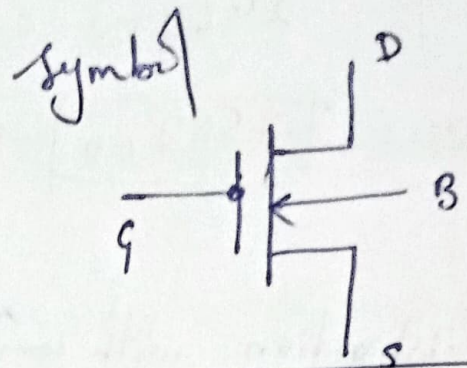 Symbol
D
G
B
S